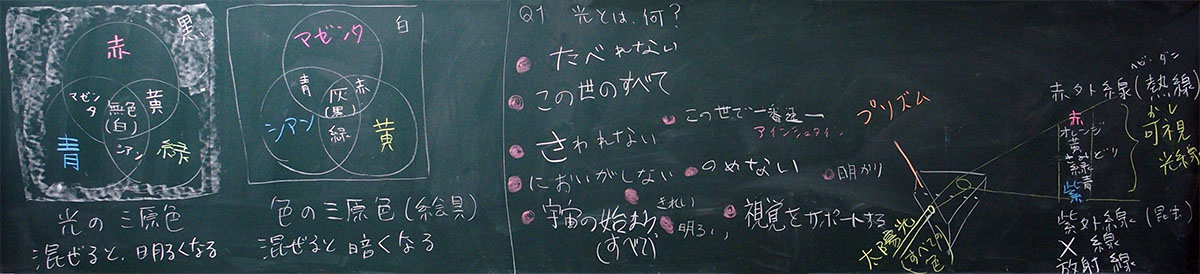 黒
赤
マゼンタ
黄
無色
(白)
青
シアン
緑
光の三原色
混ぜると、明るくなる
白
マゼンタ
青
赤
灰
(黒)
シアン
緑
黄
色の三原色(絵具)
混ぜると暗くなる
Q1 光とは、何?
たべれない
この世のすべて
この世で一番速一
アインシュタイン
さわれない
においがしない
のめない
明かり
きれい
宇宙の始まり
(すべて)
明るい
視覚をサポートする
プリズム
太陽光
(すべての
色)
ヘビ・ダニ
赤外線(熱線)
赤
オレンジ
黄
緑
青
紫
かし
可視
光線
紫外線(昆虫)
X線
放射線